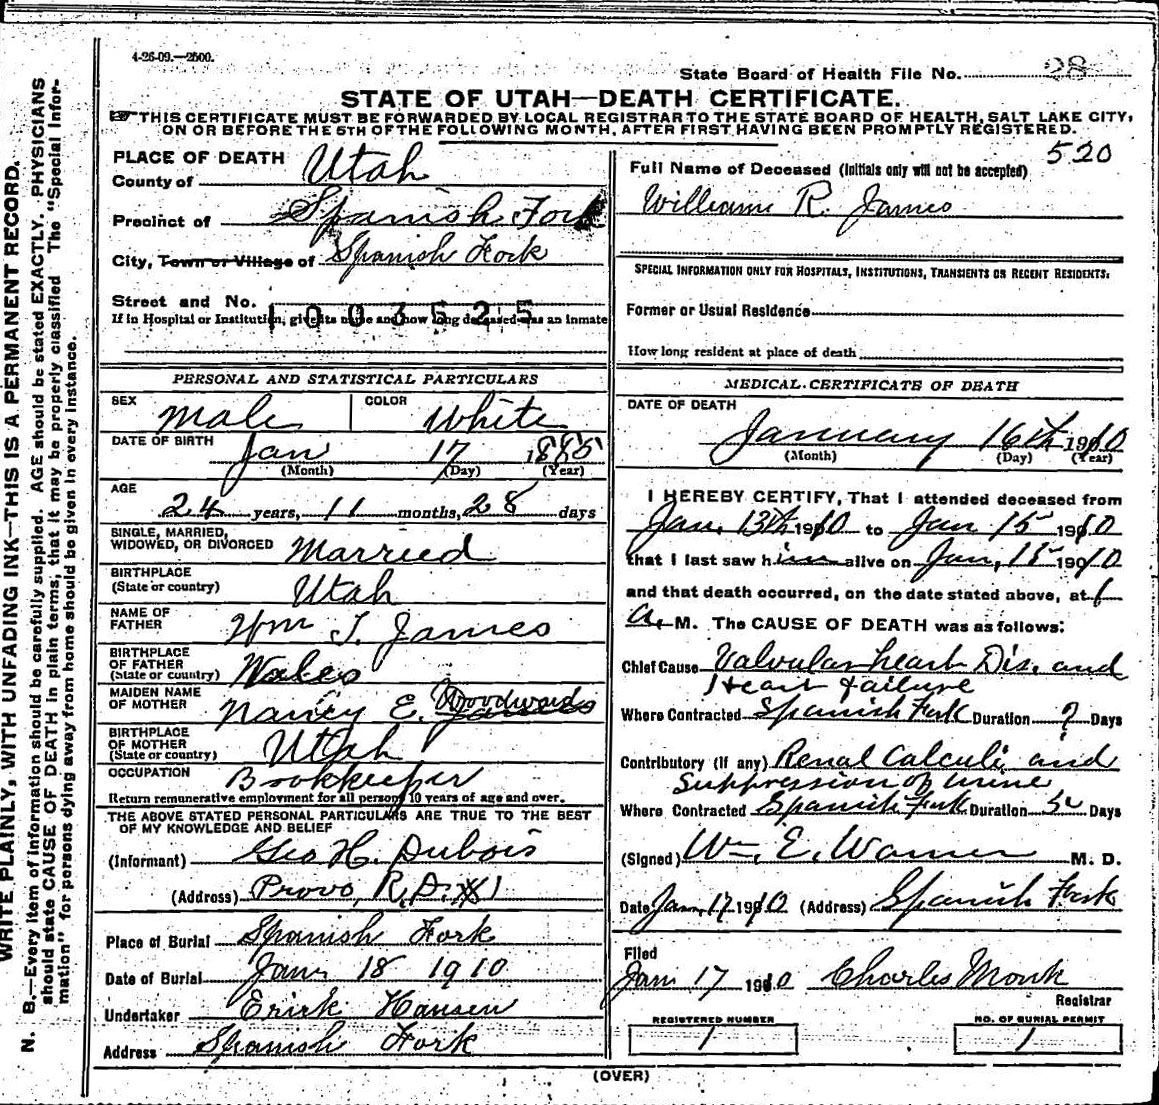 4-26-09.—2500.
State Board of Health File No. 28
STATE OF UTAH—DEATH CERTIFICATE.
THIS CERTIFICATE MUST BE FORWARDED BY LOCAL REGISTRAR TO THE STATE BOARD OF HEALTH, SALT LAKE CITY,
ON OR BEFORE THE 5TH OF THE FOLLOWING MONTH, AFTER FIRST HAVING BEEN PROMPTLY REGISTERED.
520
PLACE OF DEATH
County of Utah
Precinct of Spanish Fork
City, Town or Village of Spanish Fork
Street and No.
1003525
If in Hospital or Institution, give its name and how long deceased was an inmate
Full Name of Deceased (Initials only will not be accepted)
William R. James
SPECIAL INFORMATION ONLY FOR HOSPITALS, INSTITUTIONS, TRANSIENTS OR RECENT RESIDENTS:
Former or Usual Residence
How long resident at place of death
PERSONAL AND STATISTICAL PARTICULARS
SEX Male COLOR White
DATE OF BIRTH
Jan 17 1885
(Month) (Day) (Year)
AGE
24 years, 11 months, 28 days
SINGLE, MARRIED,
WIDOWED, OR DIVORCED Married
BIRTHPLACE
(State or country) Utah
NAME OF
FATHER Wm J. James
BIRTHPLACE
OF FATHER
(State or country) Wales
MAIDEN NAME
OF MOTHER Nancy E. Woodward
BIRTHPLACE
OF MOTHER
(State or country) Utah
OCCUPATION Bookkeeper
Return remunerative employment for all persons 10 years of age and over.
THE ABOVE STATED PERSONAL PARTICULARS ARE TRUE TO THE BEST
OF MY KNOWLEDGE AND BELIEF
(Informant) Geo H. Dubois
(Address) Provo, R.D. 1
Place of Burial Spanish Fork
Date of Burial Jan 18 1910
Undertaker Erick Hansen
Address Spanish Fork
MEDICAL CERTIFICATE OF DEATH
DATE OF DEATH
January 16th 1910
(Month) (Day) (Year)
I HEREBY CERTIFY, That I attended deceased from
Jan. 13th 1910 to Jan 15 1910
that I last saw him alive on Jan, 15 1910
and that death occurred, on the date stated above, at 1
A. M. The CAUSE OF DEATH was as follows:
Chief Cause Valvular heart Dis. and
Heart failure
Where Contracted Spanish Fork Duration ? Days
Contributory (if any) Renal Calculi and
Suppression of urine
Where Contracted Spanish Fork Duration Days
(Signed) Wm. E. Warner M. D.
Date Jan. 17 1910 (Address) Spanish Fork
Filed
Jan 17 1910 Charles Monk
Registrar
REGISTERED NUMBER
1
NO. OF BURIAL PERMIT
1
(OVER)
WRITE PLAINLY, WITH UNFADING INK—THIS IS A PERMANENT RECORD.
N. B.—Every item of information should be carefully supplied. AGE should be stated EXACTLY. PHYSICIANS
should state CAUSE OF DEATH in plain terms, that it may be properly classified. The "Special Infor-
mation" for persons dying away from home should be given in every instance.